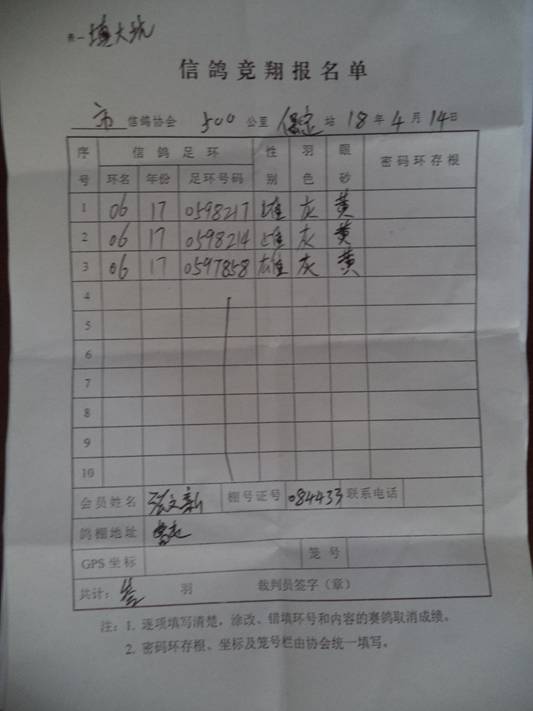 表一填大坑
信鸽竞翔报名单
市 信鸽协会 500 公里 保定 站 18 年 4 月 14 日
序号 信鸽足环 性别 羽色 眼砂 密码环存根
环名 年份 足环号码
1 06 17 0598217 雄 灰 黄
2 06 17 0598214 雄 灰 黄
3 06 17 0597858 雄 灰 黄
4
5
6
7
8
9
10
会员姓名 张文新 棚号证号 084433 联系电话
鸽棚地址
GPS坐标 笼号
共计：叁 羽 裁判员签字（章）
注：1. 逐项填写清楚，涂改、错填环号和内容的赛鸽取消成绩。
2. 密码环存根、坐标及笼号栏由协会统一填写。